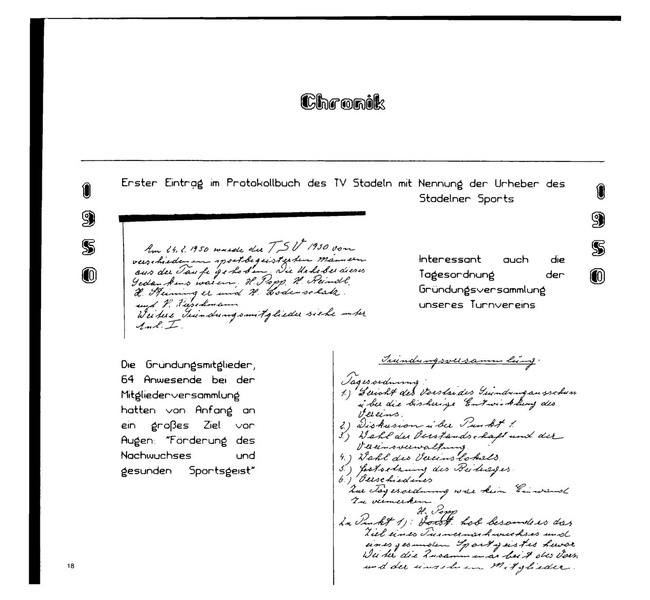 Chronik
Erster Eintrag im Protokollbuch des TV Stadeln mit Nennung der Urheber des
Stadelner Sports
1950
1950
Am 24.2.1950 wurde der TSV 1950 von
verschiedenen sportbegeisterten Männern
aus der Taufe gehoben. Die Urheber dieses
Gedankens waren, H. Popp, H. Reindl,
H. und H.
und H.
Weitere Gründungsmitglieder siehe unter
Anl. I.
Interessant auch die
Tagesordnung der
Gründungsversammlung
unseres Turnvereins
Die Gründungsmitglieder,
64 Anwesende bei der
Mitgliederversammlung
hatten von Anfang an
ein großes Ziel vor
Augen: "Förderung des
Nachwuchses und
gesunden Sportsgeist"
Gründungsversammlung.
Tagesordnung:
1.) Bericht des Vorstandes Gründungsausschuss
über die bisherige Entwicklung des
Vereins.
2) Diskusion über Punkt 1.
3) Wahl der Vorstandschaft und der
Vereinsverwaltung
4.) Wahl des Vereinslokals.
5.) Festsetzung des Beitrages.
6.) Verschiedenes
Zur Tagesordnung war kein Einwand
zu vermerken
H. Popp
Zu Punkt 1): Vorst. hob besonders das
Ziel eines Turnernachwuchses und
eines gesunden Sportgeistes hervor
Weiter die Zusammenarbeit des Vors.
und der einzelnen Mitglieder.
18